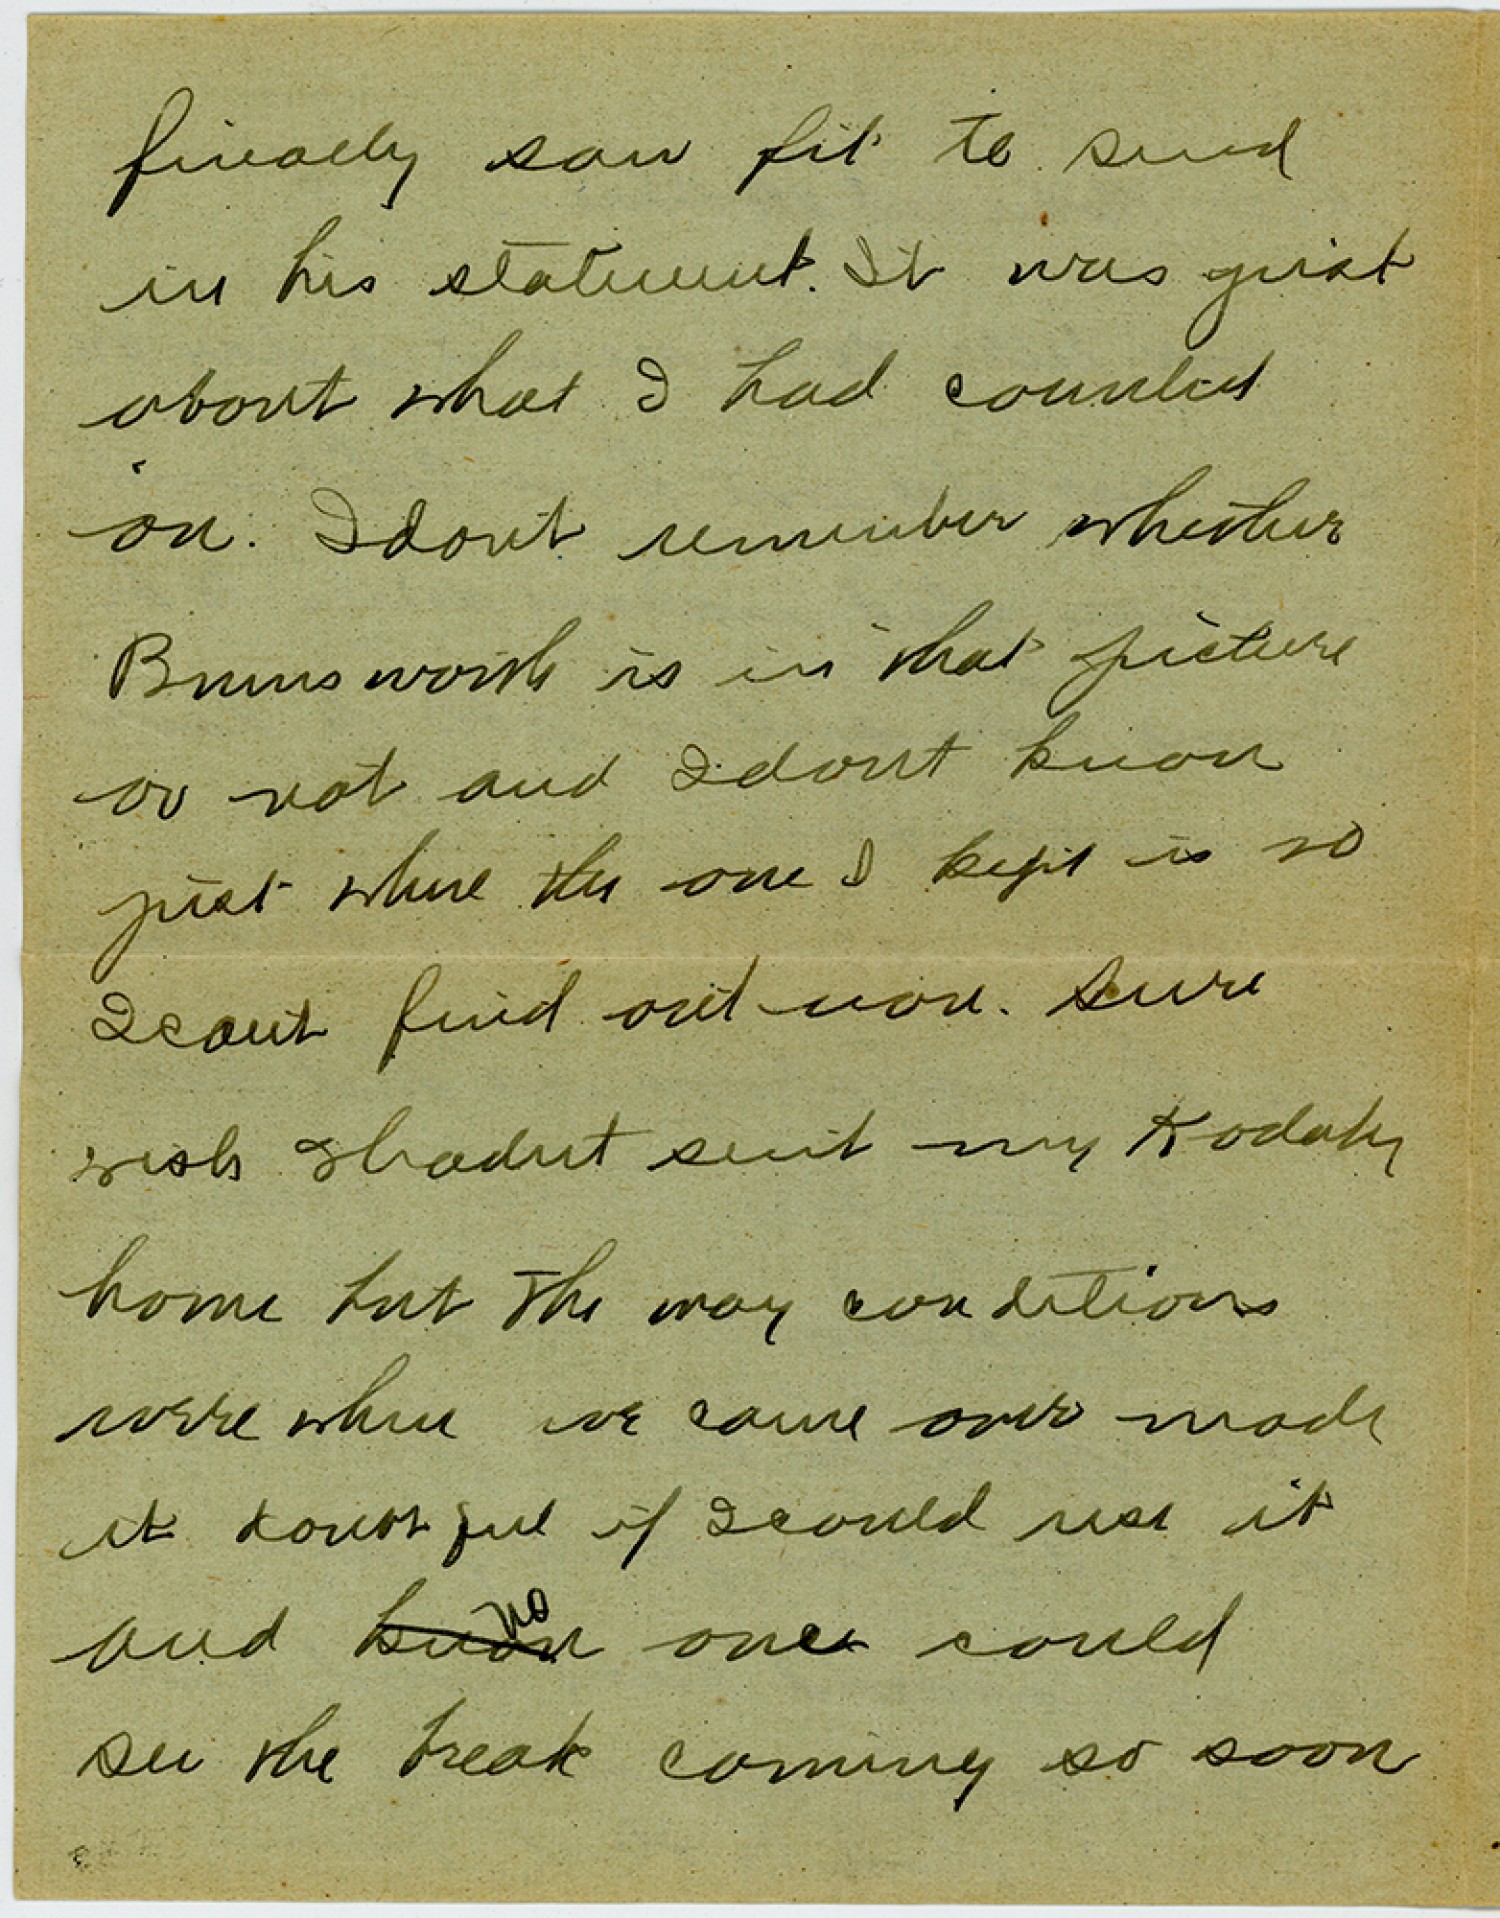 finally saw fit to send
in his statement. It was just
about what I had counted
on. I dont remember whether
is in that picture
or not and I dont know
just where the one I kept is so
I cant find out now. Sure
wish I hadnt sent my Kodak
home but the way conditions
were when we came over made
it doubtful if I could use it
and know no one could
see the break coming so soon